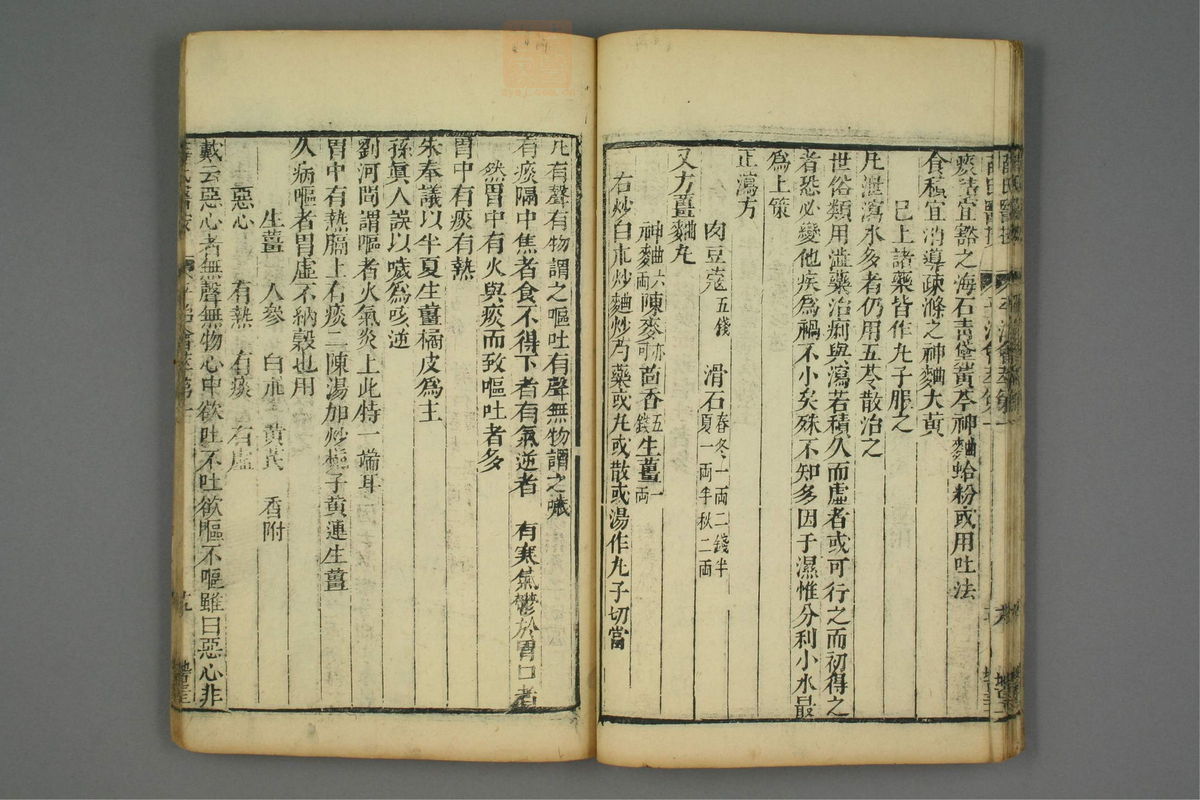 痰積宜豁之海石青黛黃芩神麯蛤粉或用吐法
食積宜消導疎滌之神麯大黃
已上諸藥皆作丸子服之
凡泄瀉水多者仍用五苓散治之
世俗類用澁藥治痢與瀉若積久而虛者或可行之而初得之
者恐必變他疾為禍不小矣殊不知多因于濕惟分利小水最
為上策
止瀉方
肉豆蔻五錢 滑石春冬一兩二錢半夏一兩半秋二兩
又方薑麯丸
神麯六兩陳麥亦可茴香五錢生薑一兩
右炒白朮炒麯炒芍藥或丸或散或湯作丸子切當
凡有聲有物謂之嘔吐有聲無物謂之噦
有痰隔中焦者食不得下者有氣逆者 有寒氣鬱於胃口者
然胃中有火與痰而致嘔吐者多
胃中有痰有熱
朱奉議以半夏生薑橘皮為主
孫眞人誤以噦為咳逆
劉河間謂嘔者火氣炎上此特一端耳
胃中有熱膈上有痰二陳湯加炒梔子黃連生薑
久病嘔者胃虛不納穀也用
生薑 人參 白朮 黃芪 香附
惡心 有熱 有痰 有虛
戴云惡心者無聲無物心中欲吐不吐欲嘔不嘔雖曰惡心非